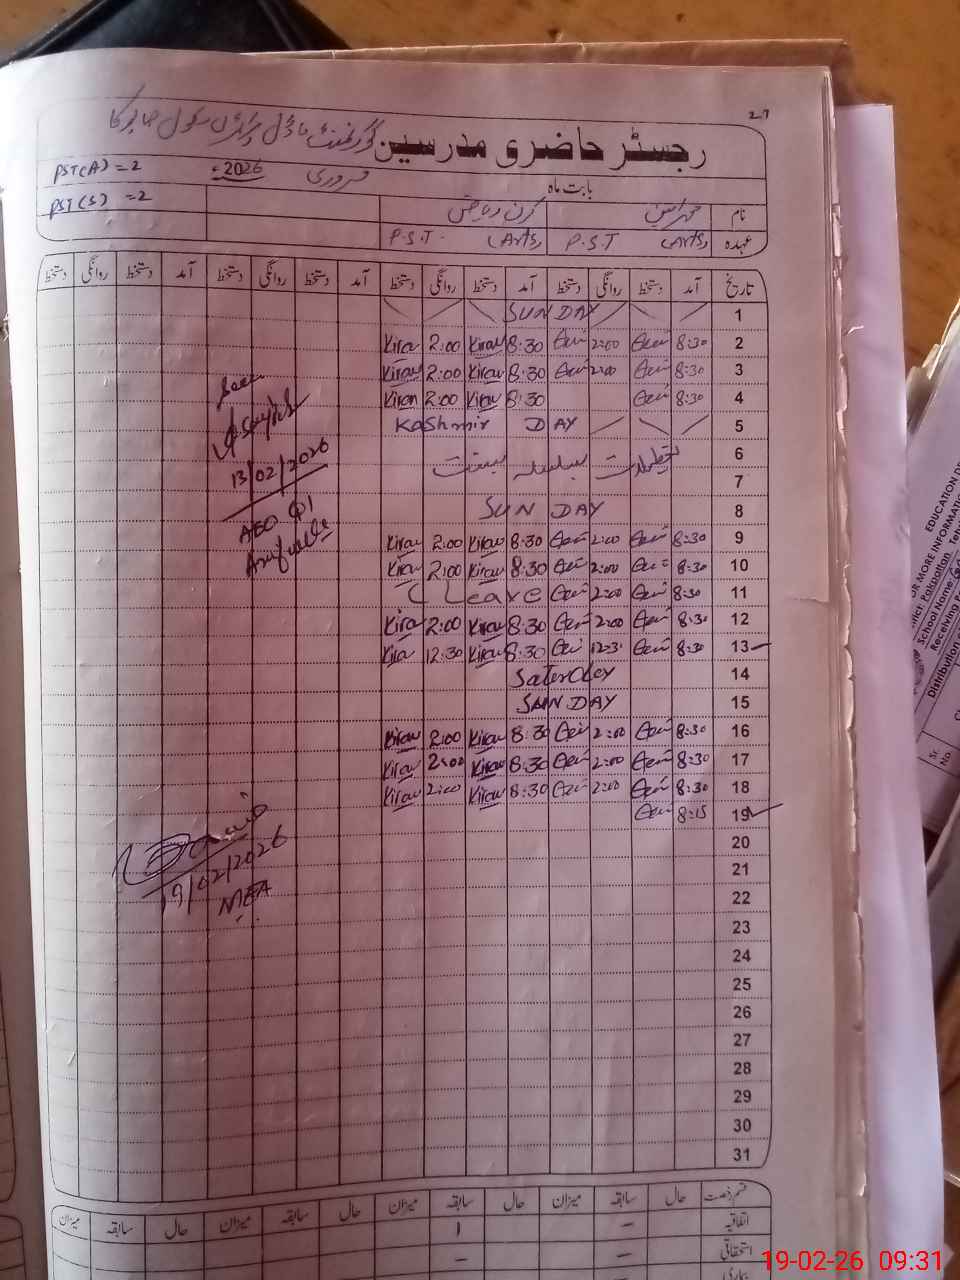 27
گورنمنٹ ماڈل پرائمری سکول
رجسٹر حاضری مدرسین
PST(A) = 2
بابت ماہ فروری 2026ء
PST(S) = 2
نام کرن ریاض
عہدہ P.S.T (Arts) P.S.T. (Arts)
تاریخ آمد دستخط روانگی دستخط آمد دستخط روانگی دستخط آمد دستخط روانگی دستخط آمد دستخط روانگی دستخط
1 SUNDAY
2 8:30 2:00 8:30 Kiran 2:00 Kiran
3 8:30 2:00 8:30 Kiran 2:00 Kiran
4 8:30 8:30 Kiran 2:00 Kiran
5 Kashmir DAY
6 تعطیلات بسلسلہ بسنت
7
8 SUN DAY
9 8:30 2:00 8:30 Kiran 2:00 Kiran
10 8:30 2:00 8:30 Kiran 2:00 Kiran
11 8:30 2:00 C Leave
12 8:30 2:00 8:30 Kiran 2:00 Kiran
13 8:30 12:3 8:30 Kiran 12:30 Kira
14 Saterday
15 SUNDAY
16 8:30 2:00 8:30 Kiran 2:00 Kiran
17 8:30 2:00 8:30 Kiran 2:00 Kiran
18 8:30 2:00 8:30 Kiran 2:00 Kiran
19 8:15
20
21
22
23
24
25
26
27
28
29
30
31
Seen
13/02/2026
AEO
19/02/2026
MEA
قسم رخصت حال سابقہ میزان حال سابقہ میزان حال سابقہ میزان حال سابقہ میزان
اتفاقیہ – 1
استحقاقی – –
بیماری
EDUCATION
OR MORE INFORMATION
School Name
Distribution
Sr. No.
19-02-26 09:31